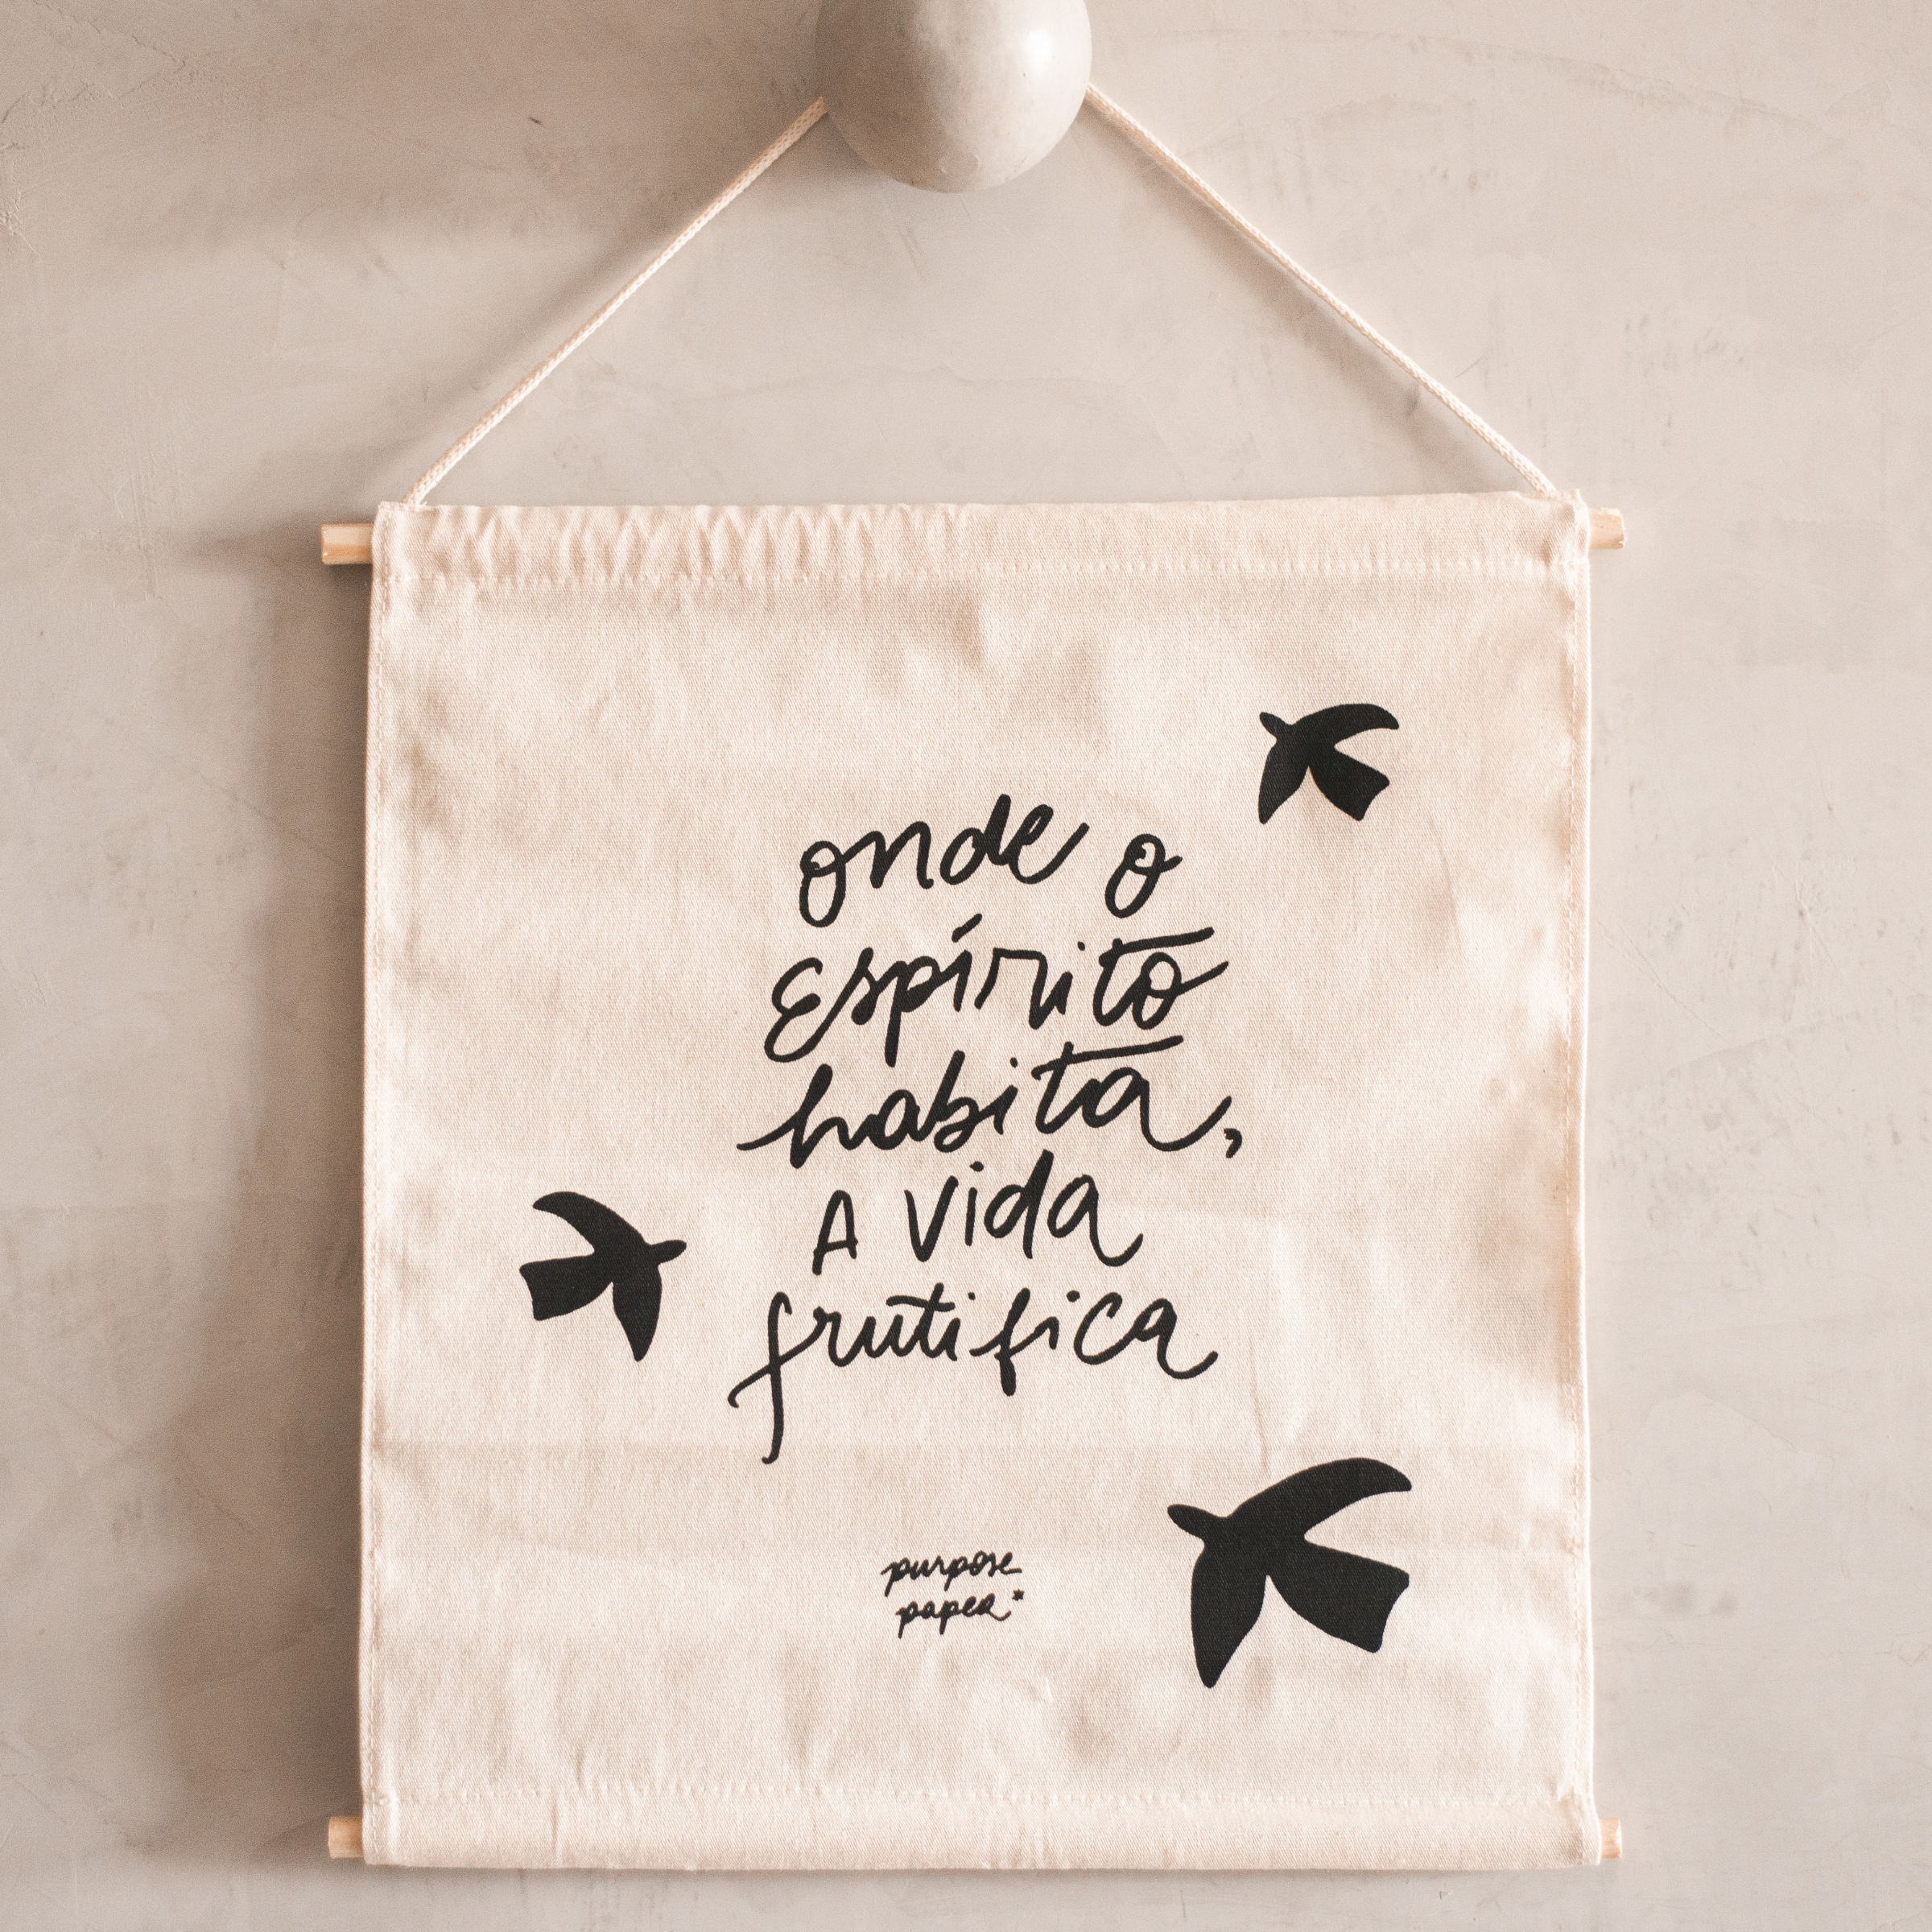 onde o
Espírito
habita,
A vida
frutifica
purpose
paper*